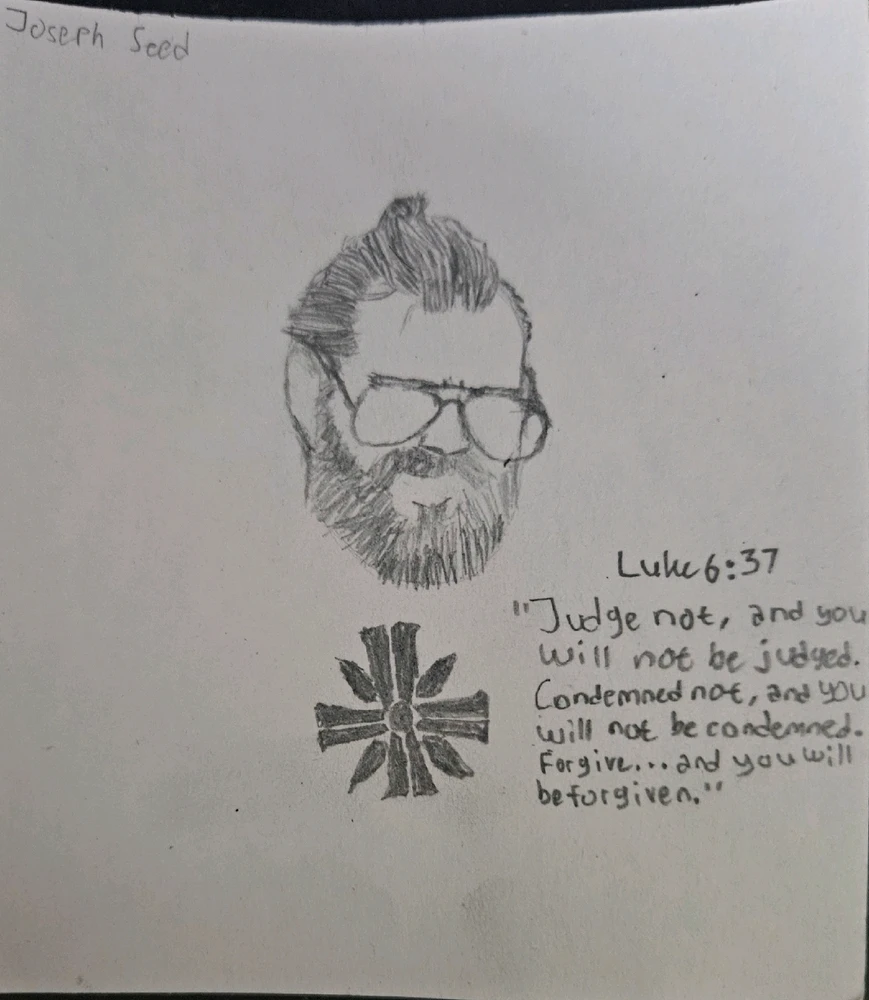 Joseph Seed
Luke 6:37
"Judge not, and you
will not be judged.
Condemned not, and you
will not be condemned.
Forgive... and you will
be forgiven."